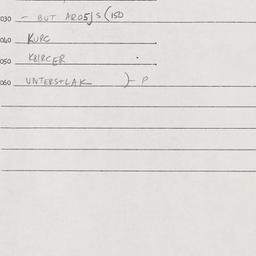 030 - BUT AROSJS (150
040 KURC
050 KBIRCER
060 UNTERS+LAK }- P